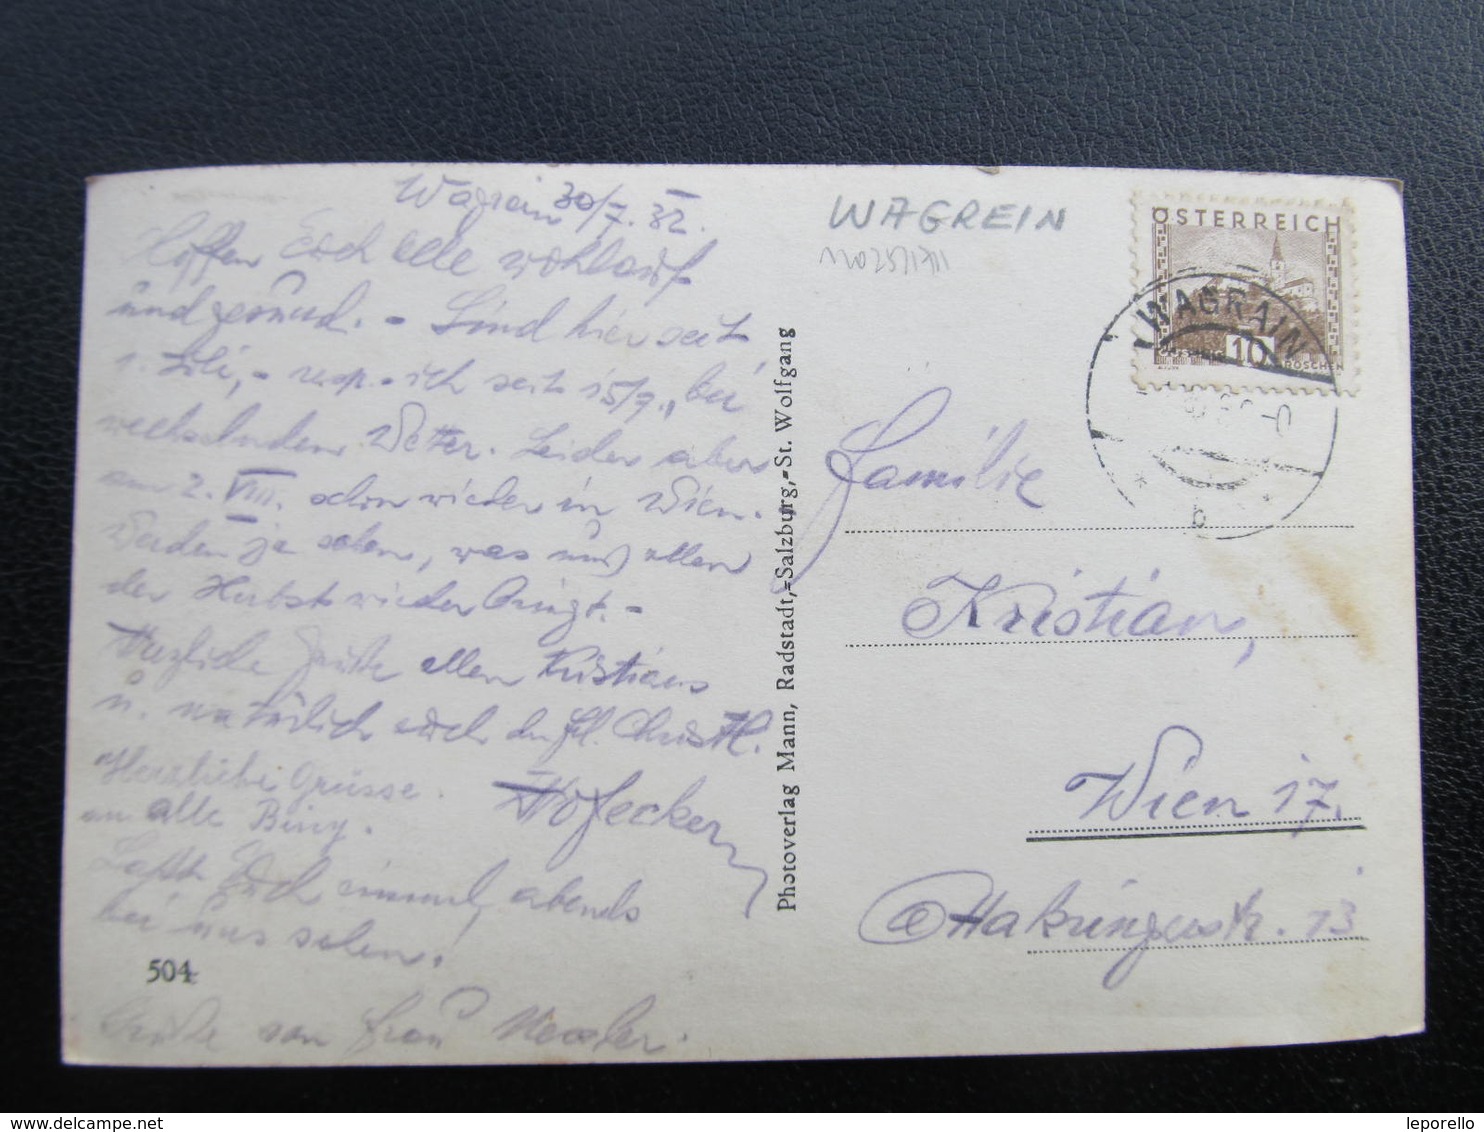 Wagrein 30/7. 32.
Hoffen Euch alle wohlauf
und gesund. - Sind hier seit
1. Juli, - resp. - ich seit 15/7., bei
wechselndem Wetter. Leider aber
am 2. VIII. schon wieder in Wien.
Werden ja sehen, was uns allen
der Herbst wieder bringt. -
Herzliche Grüße allen Kristians
u. natürlich auch den Christl.
Hofecker
Herzliche Grüsse
an alle
Laßt Euch einmal abends
bei uns sehen!
504
Grüße von Frau
Photoverlag Mann, Radstadt,=Salzburg,=St. Wolfgang
WAGREIN
ÖSTERREICH
10
GROSCHEN
WAGRAIN
b
Familie
Kristian,
Wien 17.
Hakingerstr. 13
leporello